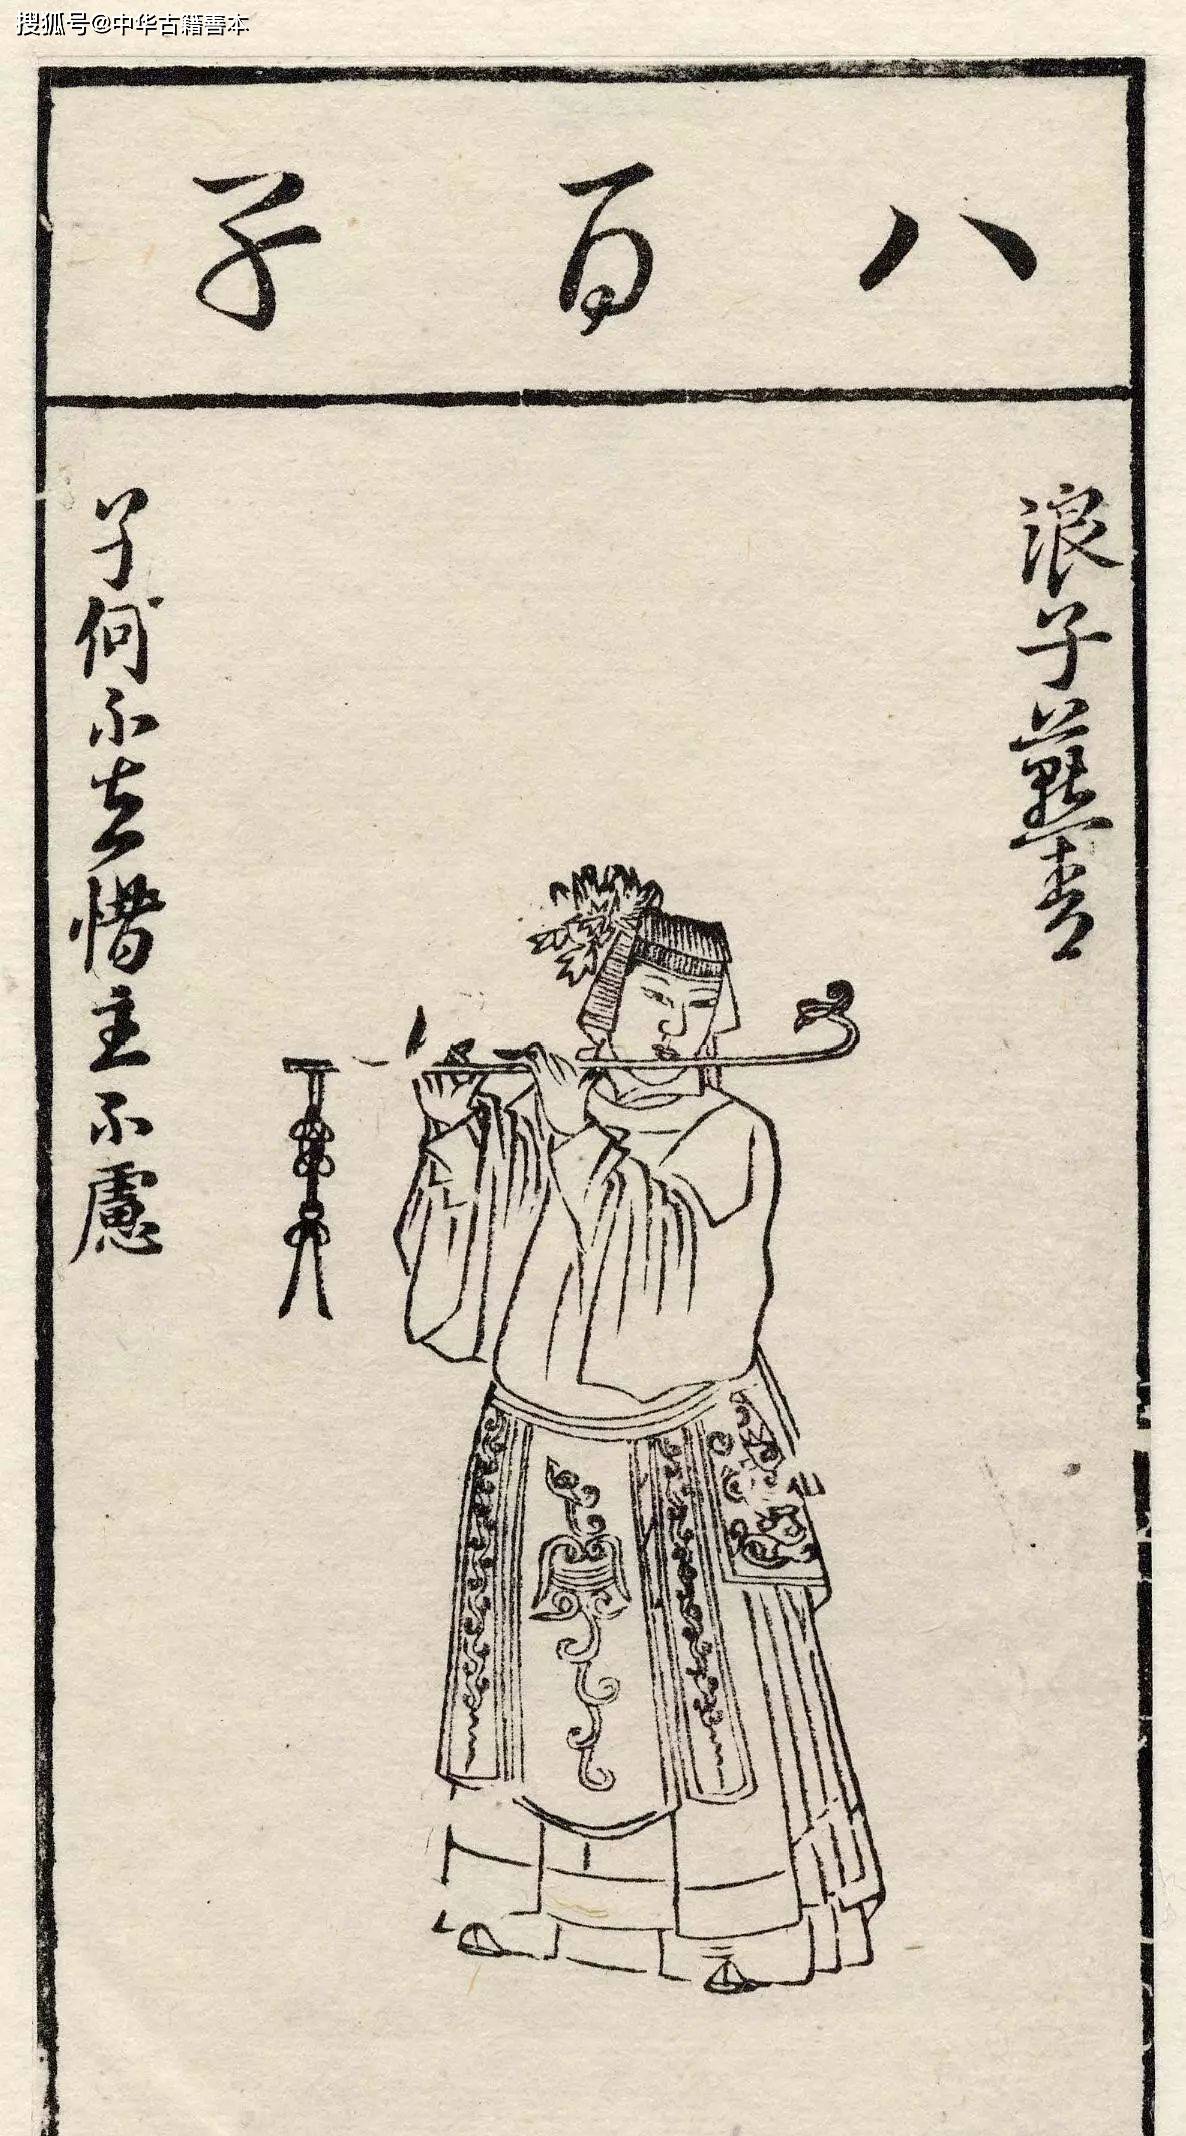 搜狐号@中华古籍善本
八百子
浪子燕青
子何不去惜主不慮